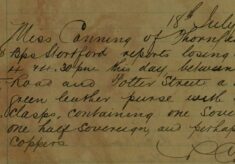 18th July
Miss Canning of Thornla
Bps Stortford reports losing
at 4.30pm this day between
Road and Potter Street a
green leather purse with
clasps, containing one Sove
one half Sovereign, and perhap
coppers